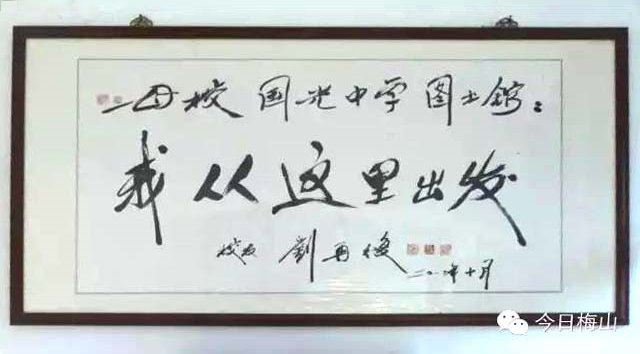 母校国光中学图书馆:
我从这里出发
校友 刘再复
二〇一〇年十月
今日梅山